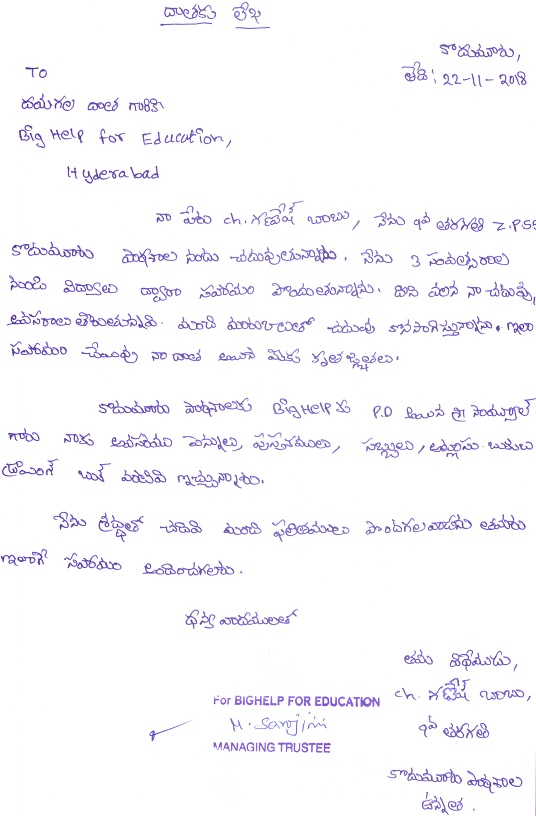 దాతకు లేఖ
కొడుమూరు,
తేది: 22-11-2018
TO
దయగల దాత గారికి
Big Help for Education,
Hyderabad
నా పేరు ch. గణేష్ బాబు, నేను 9వ తరగతి Z.P.SS
కొడుమూరు పాఠశాల నందు చదువుతున్నాను. నేను 3 సంవత్సరాల
నుండి విద్యాలు ద్వారా సహాయం పొందుతున్నాను. దీని వలన నా చదువు
అవసరాలు తీరుతున్నవి. మంచి మార్కులతో చదువు కొనసాగిస్తున్నాను. ఇలా
సహాయం చేయుచు నా దాత అయిన మీకు కృతజ్ఞతలు.
కొడుమూరు పాఠశాలకు BIGHELP కు P.D అయిన శ్రీ
గారు నాకు అవసరమగు పెన్నులు, పుస్తకములు, సబ్బులు, బుక్కులు
డ్రాయింగ్ బుక్ వంటివి ఇచ్చుచున్నారు.
నేను శ్రద్ధతో చదివి మంచి ఫలితములు పొందగలవాడను తమరు
ఇలాగే సహాయం అందించగలరు.
ధన్యవాదములతో
తమ విధేయుడు,
ch. గణేష్ బాబు,
9వ తరగతి
కొడుమూరు పాఠశాల
ఉన్నత.
For BIGHELP FOR EDUCATION
M. Sarojini
MANAGING TRUSTEE